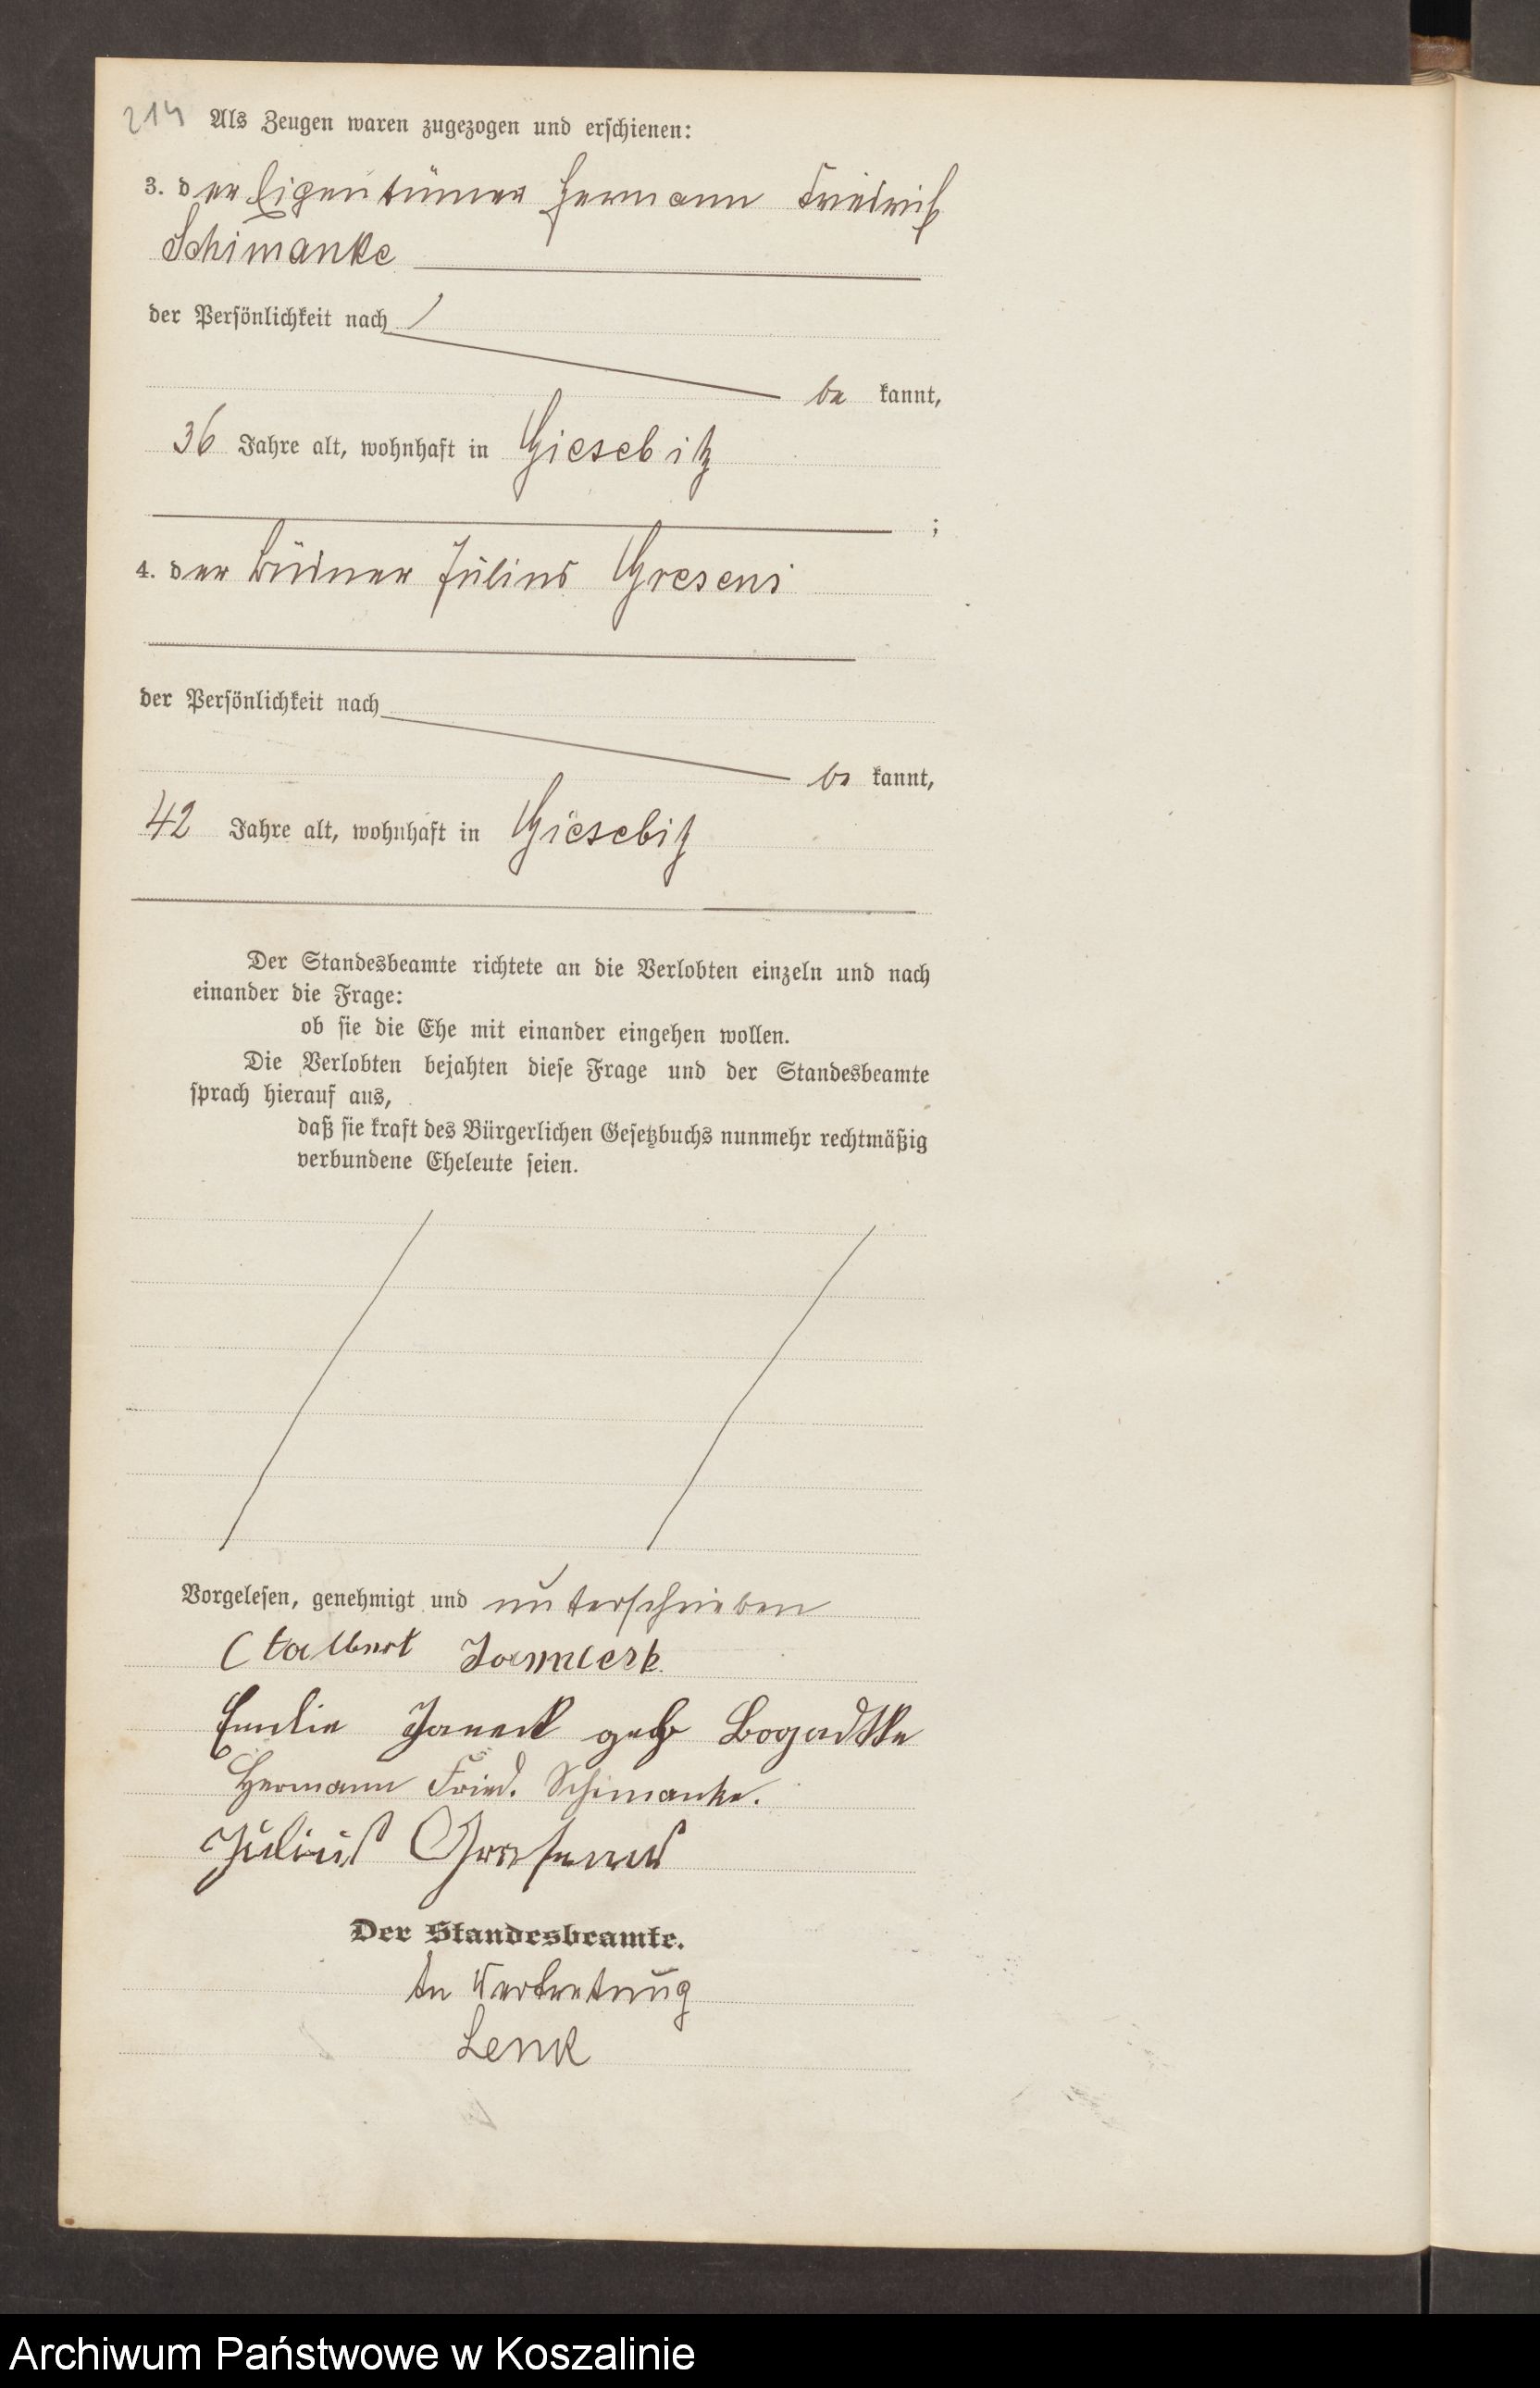 214 Als Zeugen waren zugezogen und erschienen:
3. der Eigentümer Hermann Friedrich
Schimanke
der Persönlichkeit nach
be kannt,
36 Jahre alt, wohnhaft in Giesebitz
;
4. der Büdner Julius Gresens
der Persönlichkeit nach
be kannt,
42 Jahre alt, wohnhaft in Giesebitz
Der Standesbeamte richtete an die Verlobten einzeln und nach
einander die Frage:
ob sie die Ehe mit einander eingehen wollen.
Die Verlobten bejahten diese Frage und der Standesbeamte
sprach hierauf aus,
daß sie kraft des Bürgerlichen Gesetzbuchs nunmehr rechtmäßig
verbundene Eheleute seien.
Vorgelesen, genehmigt und unterschrieben
Emilie Janeck geb Bogadtke
Hermann Fried. Schimanke.
Julius Gresens
Der Standesbeamte.
In Vertretung
Lenk
Archiwum Państwowe w Koszalinie